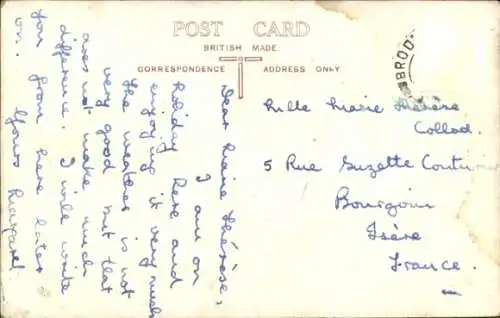 POST CARD
BRITISH MADE
CORRESPONDENCE
ADDRESS ONLY
BROD
Dear Marie Thérèse,
I am on
holiday here and
enjoying it very much
the weather is not
very good but that
does not make much
difference. I will write
you from here later
on.
Yours Margaret
Mlle Marie Thérèse
Collod.
5 Rue Suzette
Bourgoin
Isère
France.